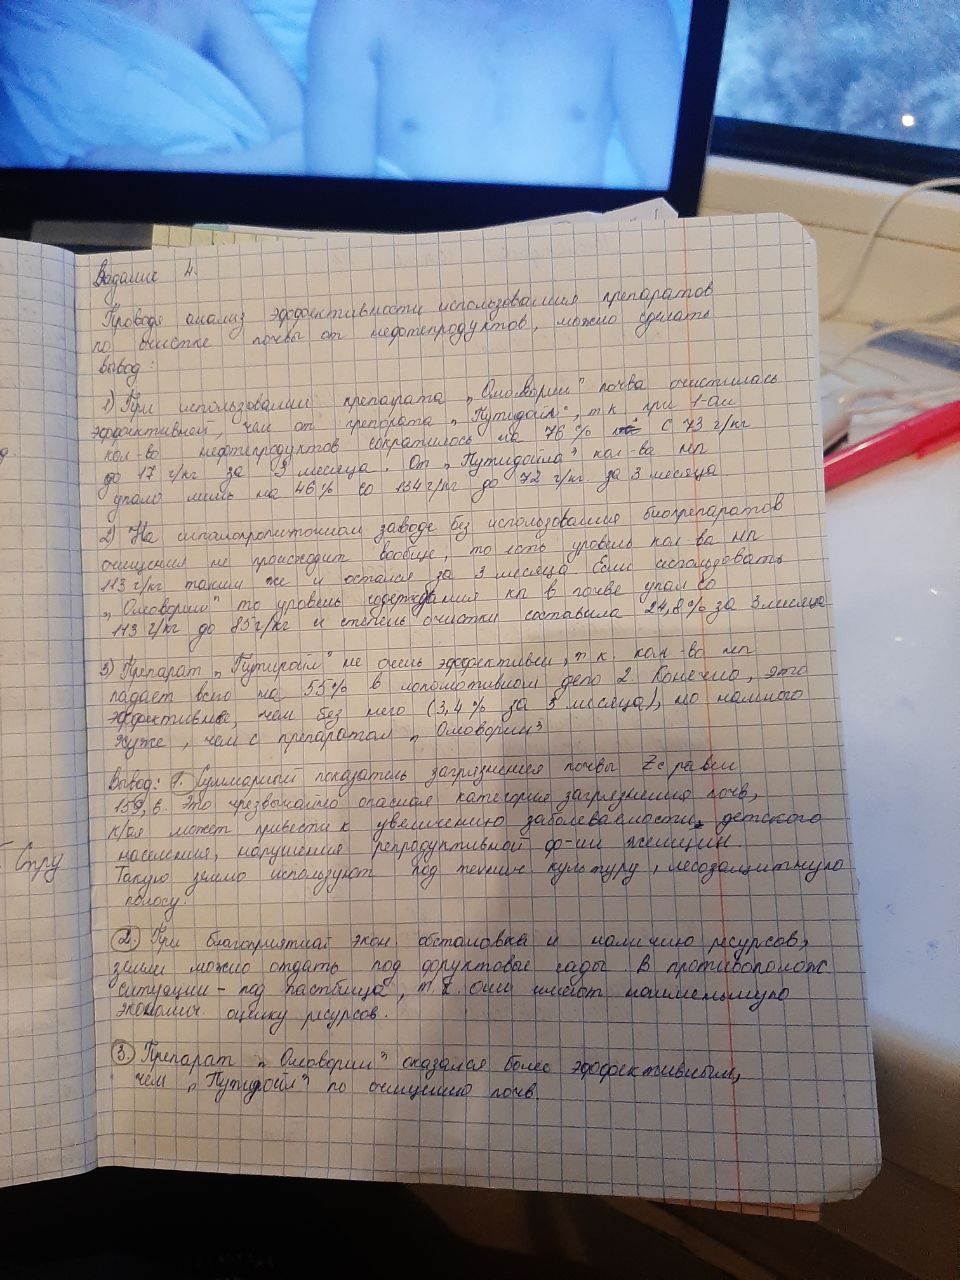 Задание 4.
Проводя анализ эффективности использования препаратов
по очистке почвы от нефтепродуктов, можно сделать
вывод:
1) При использовании препарата „Омоворин" почва очистилась
эффективней, чем от препарата „Путидойл", т к при 1-ом
кол-во нефтепродуктов сократилось на 76 % с 73 г/кг
до 17 г/кг за 3 месяца. От „Путидойла" кол-ва нп
упало лишь на 46% со 134г/кг до 72 г/кг за 3 месяца.
2) На шпалопропиточном заводе без использования биопрепаратов
очищения не происходит вообще, то есть уровень кол ва нп
113 г/кг таким же и остался за 3 месяца Если использовать
„Омоворин" то уровень содеждания нп в почве упал со
113 г/кг до 85 г/кг и степень очистки составила 24,8% за 3месяца
3) Препарат „Путидойл" не очень эффективен, т. к. кол-во нп
падает всего на 55% в локомотивном депо 2. Конечно, это
эффективнее, чем без него (3,4 % за 3 месяца), но намного
хуже, чем с препаратом „Омоворин"
Вывод: 1. Суммарный показатель загрязнения почвы Zc равен
159,6. Это чрезвычайно опасная категория загрязнения почв,
к/ая может привести к увеличению заболеваемости детского
населения, нарушения репродуктивной ф-ии женщин.
Такую землю используют под технич культуру, лесозащитную
полосу.
2. При благоприятной экон обстановке и наличию ресурсов,
земли можно отдать под фруктовые сады. В противополож
ситуации - под пастбища, т. к. они имеют наименьшую
экономич. оценку ресурсов.
3. Препарат „Омоворин" оказался более эффективным,
чем „Путидойл" по очищению почв.
Стру